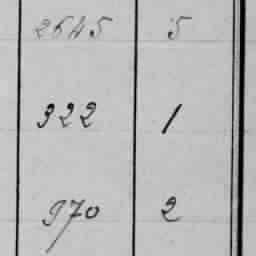 2645 5
322 1
970 2